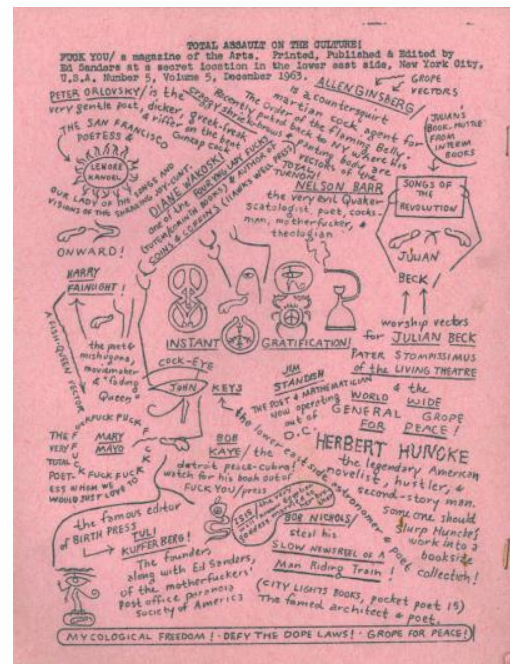 TOTAL ASSAULT ON THE CULTURE!
FUCK YOU/ a magazine of the Arts. Printed, Published & Edited by
Ed Sanders at a secret location in the lower east side, New York City,
U.S.A. Number 5, Volume 5, December 1963.
PETER ORLOVSKY/ is the
very gentle poet, dicker, greek-freak
& riffer on the bent
Gunrap cock
ALLEN GINSBERG/
is a countersquirt
martian cock agent for
The Order of the Flaming Belly.
Recently puked back to NY where his
craggy shriek-brows & panting body are
vectors of the
TOTAL
TURNON!
GROPE
VECTORS
JULIAN'S
BOOK-HUSTLE
FROM
INTERIM
BOOKS
THE SAN FRANCISCO
POETESS &
LENORE
KANDEL
OUR LADY OF THE SONGS AND
VISIONS OF THE SHARING JOY-CUNT
ONWARD!
DIANE WAKOSKI
one of the FOUR YOUNG LADY FUCKS
(TOTEM/CORINTH BOOKS) & AUTHOR OF
COINS & COFFINS (HAWKS WELL PRESS)
NELSON BARR
the very evil Quaker-
scatologist, poet, cocks-
man, motherfucker, &
theologian
SONGS OF
THE
REVOLUTION
JULIAN
BECK/
worship vectors
for JULIAN BECK
PATER STOMPISSIMUS
of the LIVING THEATRE
& the
WORLD WIDE
GENERAL GROPE
FOR PEACE!
HARRY
FAINLIGHT!
A FISH-QUEEN VECTOR
the poet &
mishugana,
moviemaker
& "Fading
Queen"
INSTANT GRATIFICATION!
COCK-EYE
JOHN KEYS
the lower east side astronomer & poet
JIM
STANDISH
THE POET & MATHEMATICIAN
now operating
out of
D.C.
THE FUCK FUCK
VERY
TOTAL
MARY
MAYO
FUCK FUCK
POET-
ESS WHOM WE
WOULD JUST LOVE TO
BOB
KAYE/ the
detroit peace-cobra!
watch for his book out of
FUCK YOU/press
HERBERT HUNCKE
the legendary American
novelist, hustler, &
second-story man.
Some one should
slurp Huncke's
work into a
bookside
collection!
the famous editor
of BIRTH PRESS
TULI
KUPFERBERG!
The founder,
along with Ed Sanders,
of the motherfuckers'
Post office paranoia
Society of America
ISIS/ the very
Egyptian
goddess
BOB NICHOLS/
steal his
SLOW NEWSREEL OF A
Man Riding Train!
(CITY LIGHTS BOOKS, pocket poet 15)
The famed architect & poet.
MYCOLOGICAL FREEDOM! · DEFY THE DOPE LAWS! · GROPE FOR PEACE!